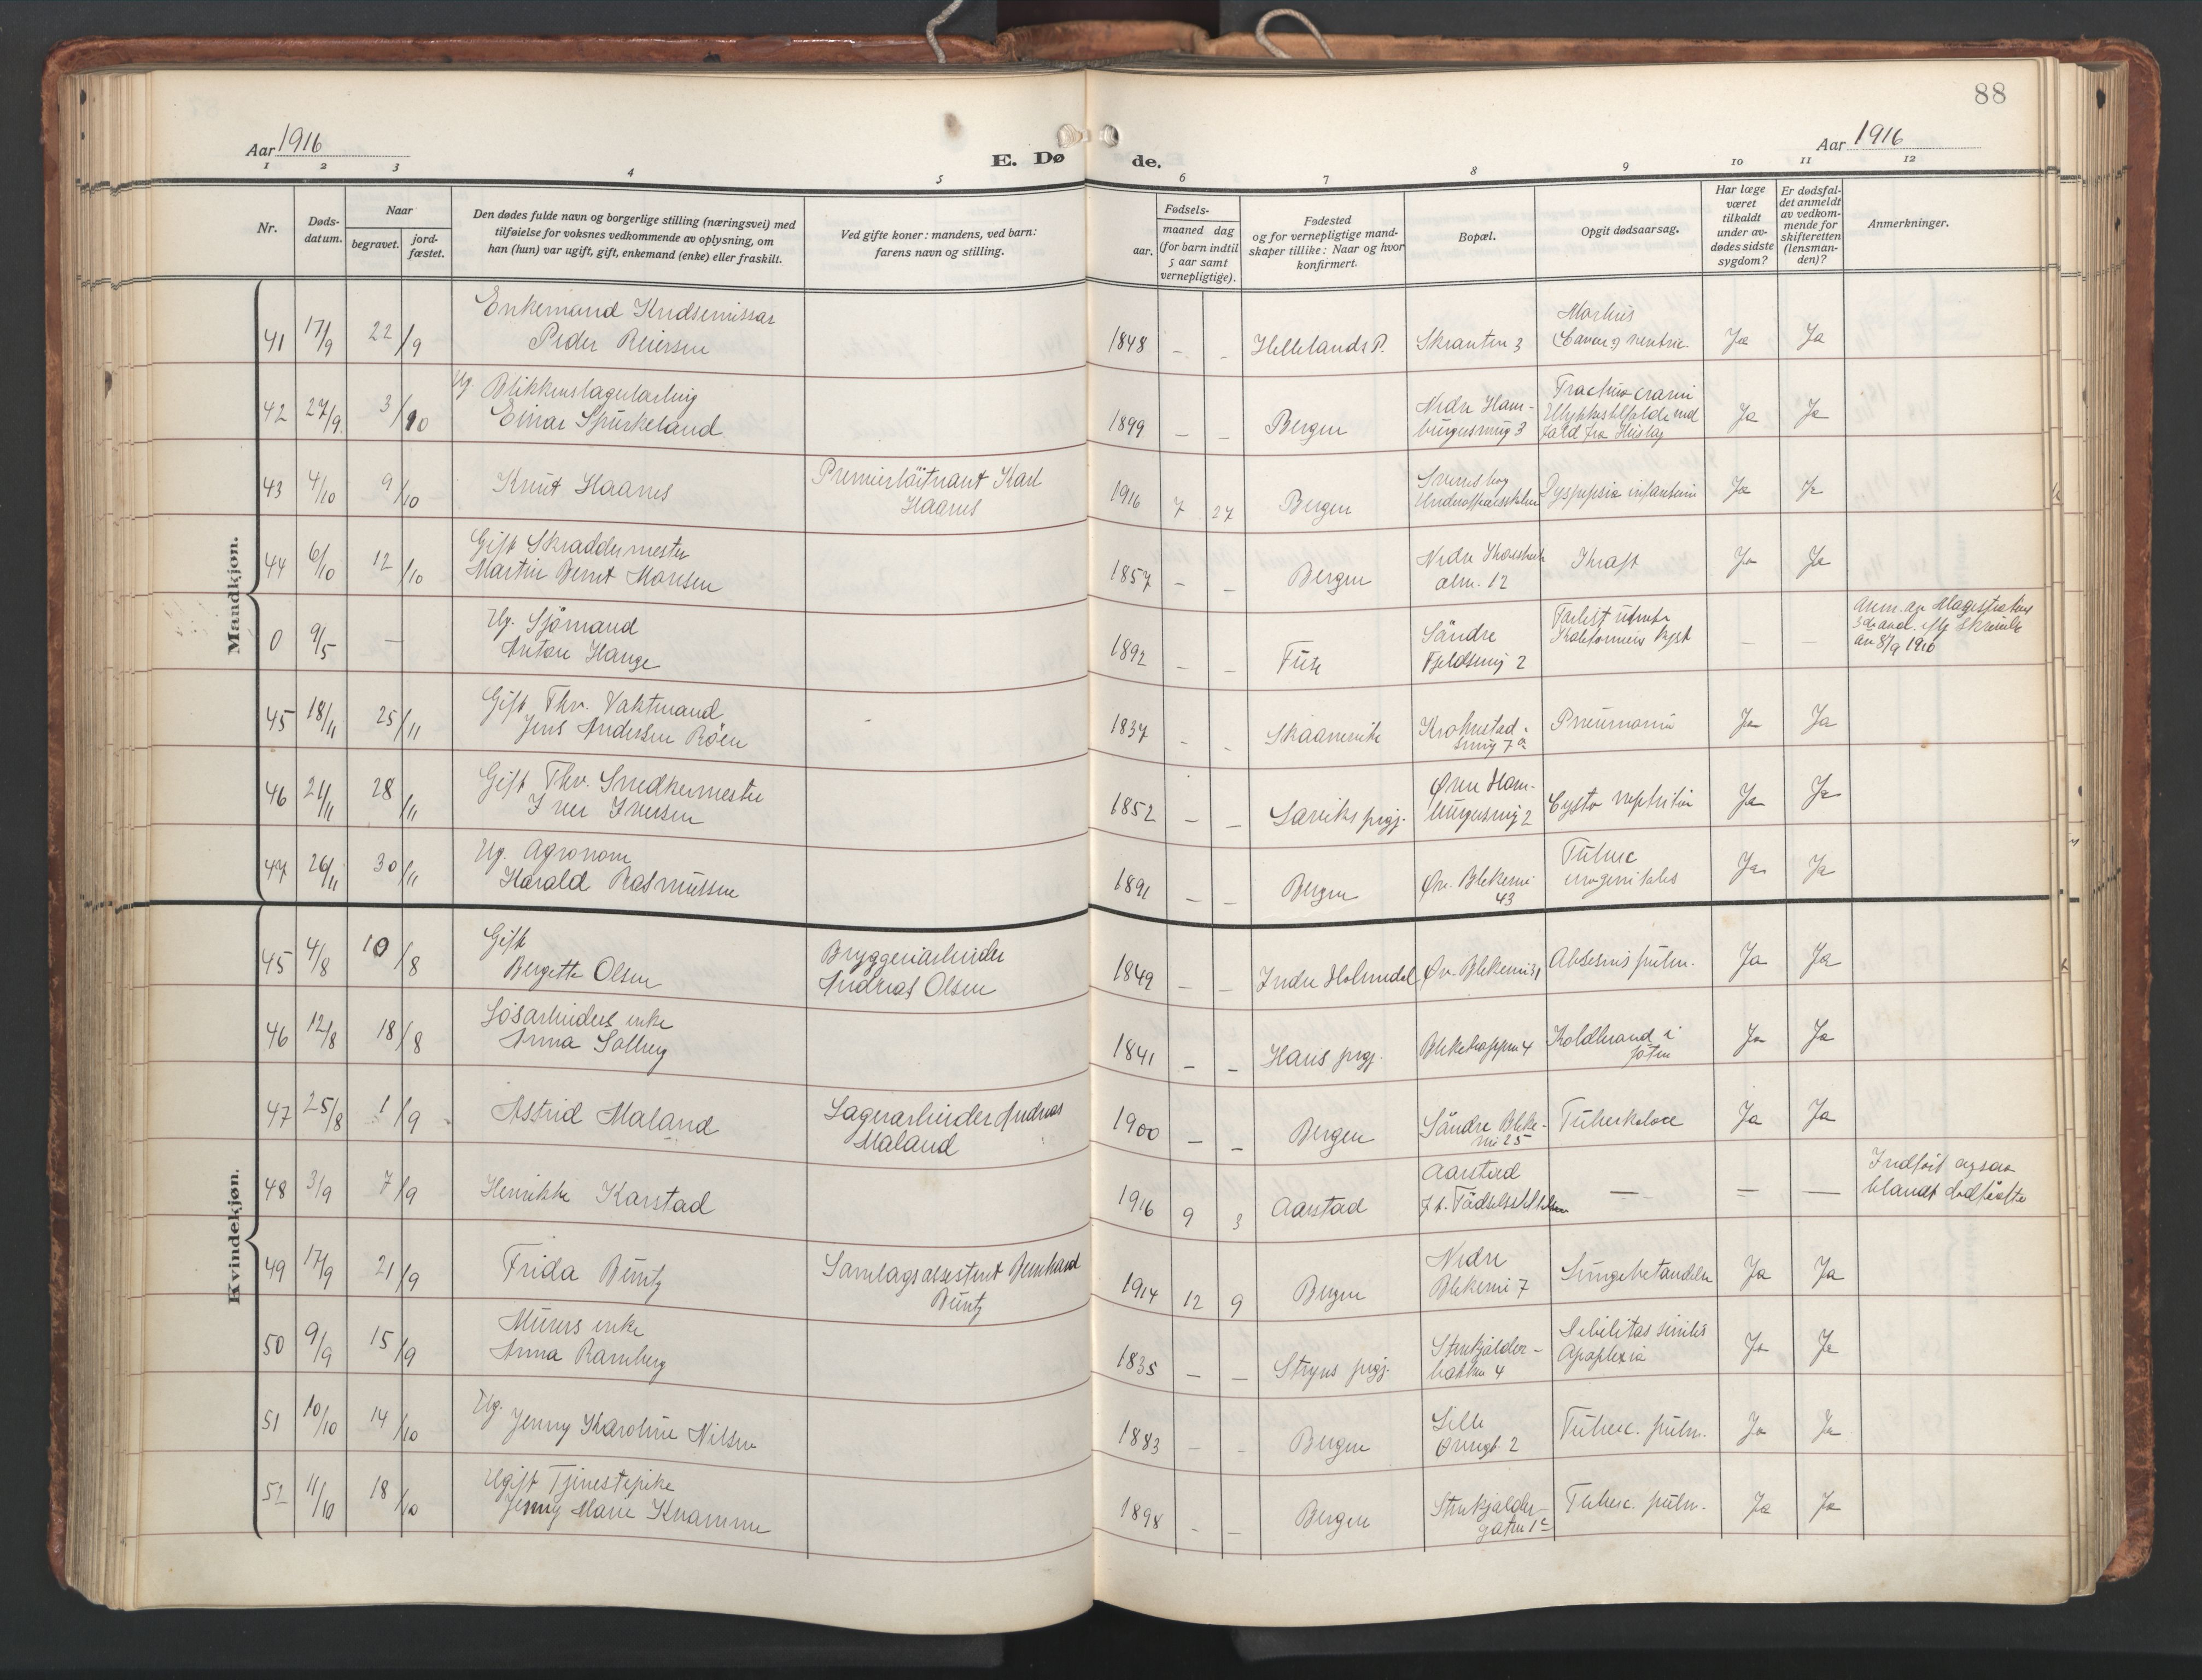 88
Aar 1916
E. Dø de.
Aar 1916
1 2 3 4 5 6 7 8 9 10 11 12
Nr.
Døds-
datum.
Naar
begravet.
jord-
fæstet.
Den dødes fulde navn og borgerlige stilling (næringsvei) med
tilføielse for voksnes vedkommende av oplysning, om
han (hun) var ugift, gift, enkemand (enke) eller fraskilt.
Ved gifte koner: mandens, ved barn:
farens navn og stilling.
Fødsels-
aar.
maaned dag
(for barn indtil
5 aar samt
vernepligtige).
Fødested
og for vernepligtige mand-
skaper tillike: Naar og hvor
konfirmert.
Bopæl.
Opgit dødsaarsag.
Har læge
været
tilkaldt
under av-
dødes sidste
sygdom?
Er dødsfal-
det anmeldt
av vedkom-
mende for
skifteretten
(lensman-
den)?
Anmerkninger.
Mandkjøn.
41 17/9 22/9 Enkemand
Peder Reiersen
1848 – – Hellelands P. Skranten 3
Cancer ventric. Ja Ja
42 27/9 3/10 Ug. Blikkenslagerlærling
Einar Spurkeland
1899 – – Bergen Nedre Ham-
burgersmug 3
Fractura cranii
Ulykkestilfælde ved
fald fra Ja Ja
43 4/10 9/10 Knut Haanes
Premierløitnant Karl
Haanes
1916 7 27 Bergen
Underofficersskolen
Dyspepsia Ja Ja
44 6/10 12/10 Gift Skraddermester
Martin Bernt Monsen
1857 – Bergen Nedre
alm. 12
Ja Ja
0 9/5 – Ug. Sjømand
Anton Hauge
1892 – – Søndre
Fjeldsmug 2
Forlist
Kyst – –
Anm. av Magistratens
3die avd. iflg skrivelse
av 8/9 1916
45 18/11 25/11 Gift Fhv. Vaktmand
Jens Andersen Røen
1837 – – Skaanevik Krohnstad-
smug 7a
Pneumonia Ja Ja
46 21/11 28/11 Gift Fhv. Snedkermester
Iver Iversen
1852 – – prgj. Øvre Ham-
burgersmug 2
Cysto nephritis Ja Ja
47 26/11 30/11 Ug. Agronom
Harald Rasmussen
1891 – – Bergen Øvr. Blekevei
43
Tuberc
urogenitalis Ja Ja
Kvindekjøn.
45 4/8 10/8 Gift
Bergette Olsen
Bryggeriarbeider
Andreas Olsen
1849 – – Indre Holmedal Øv. Blekevei 31
Abscess pulm. Ja Ja
46 12/8 18/8 Løsarbeiders enke
Anna Solberg
1841 – – Haus prgj. 4
Koldbrand i
foten Ja Ja
47 25/8 1/9 Astrid Maland
Lagerarbeider Andreas
Maland
1900 – – Bergen Søndre Bleke-
vei 25
Tuberkulose Ja Ja
48 3/9 7/9 Henrikke Karstad
1916 9 3 Aarstad Aarstad
– – –
Indført ogsaa
blandt dødfødte
49 17/9 21/9 Frida Büntz
Samlagsassistent Bernhard
Büntz
1914 12 9 Bergen Nedre
Blekevei 7
Lungebetændelse Ja Ja
50 9/9 15/9 Murers enke
Anna Ramberg
1835 – – Stryns prgj. Stenkjelder-
bakken 4
Debilitas senilis
Apoplexia Ja Ja
51 10/10 14/10 Ug.
Jenny Karoline Nilsen
1883 – – Bergen Lille
Øvregt. 2
Tuberc. pulm. Ja Ja
52 11/10 18/10 Ugift Tjenestepike
Jenny Marie Knamme
1898 – – Bergen Stenkjelder-
gaten 1c
Tuberc. pulm. Ja Ja